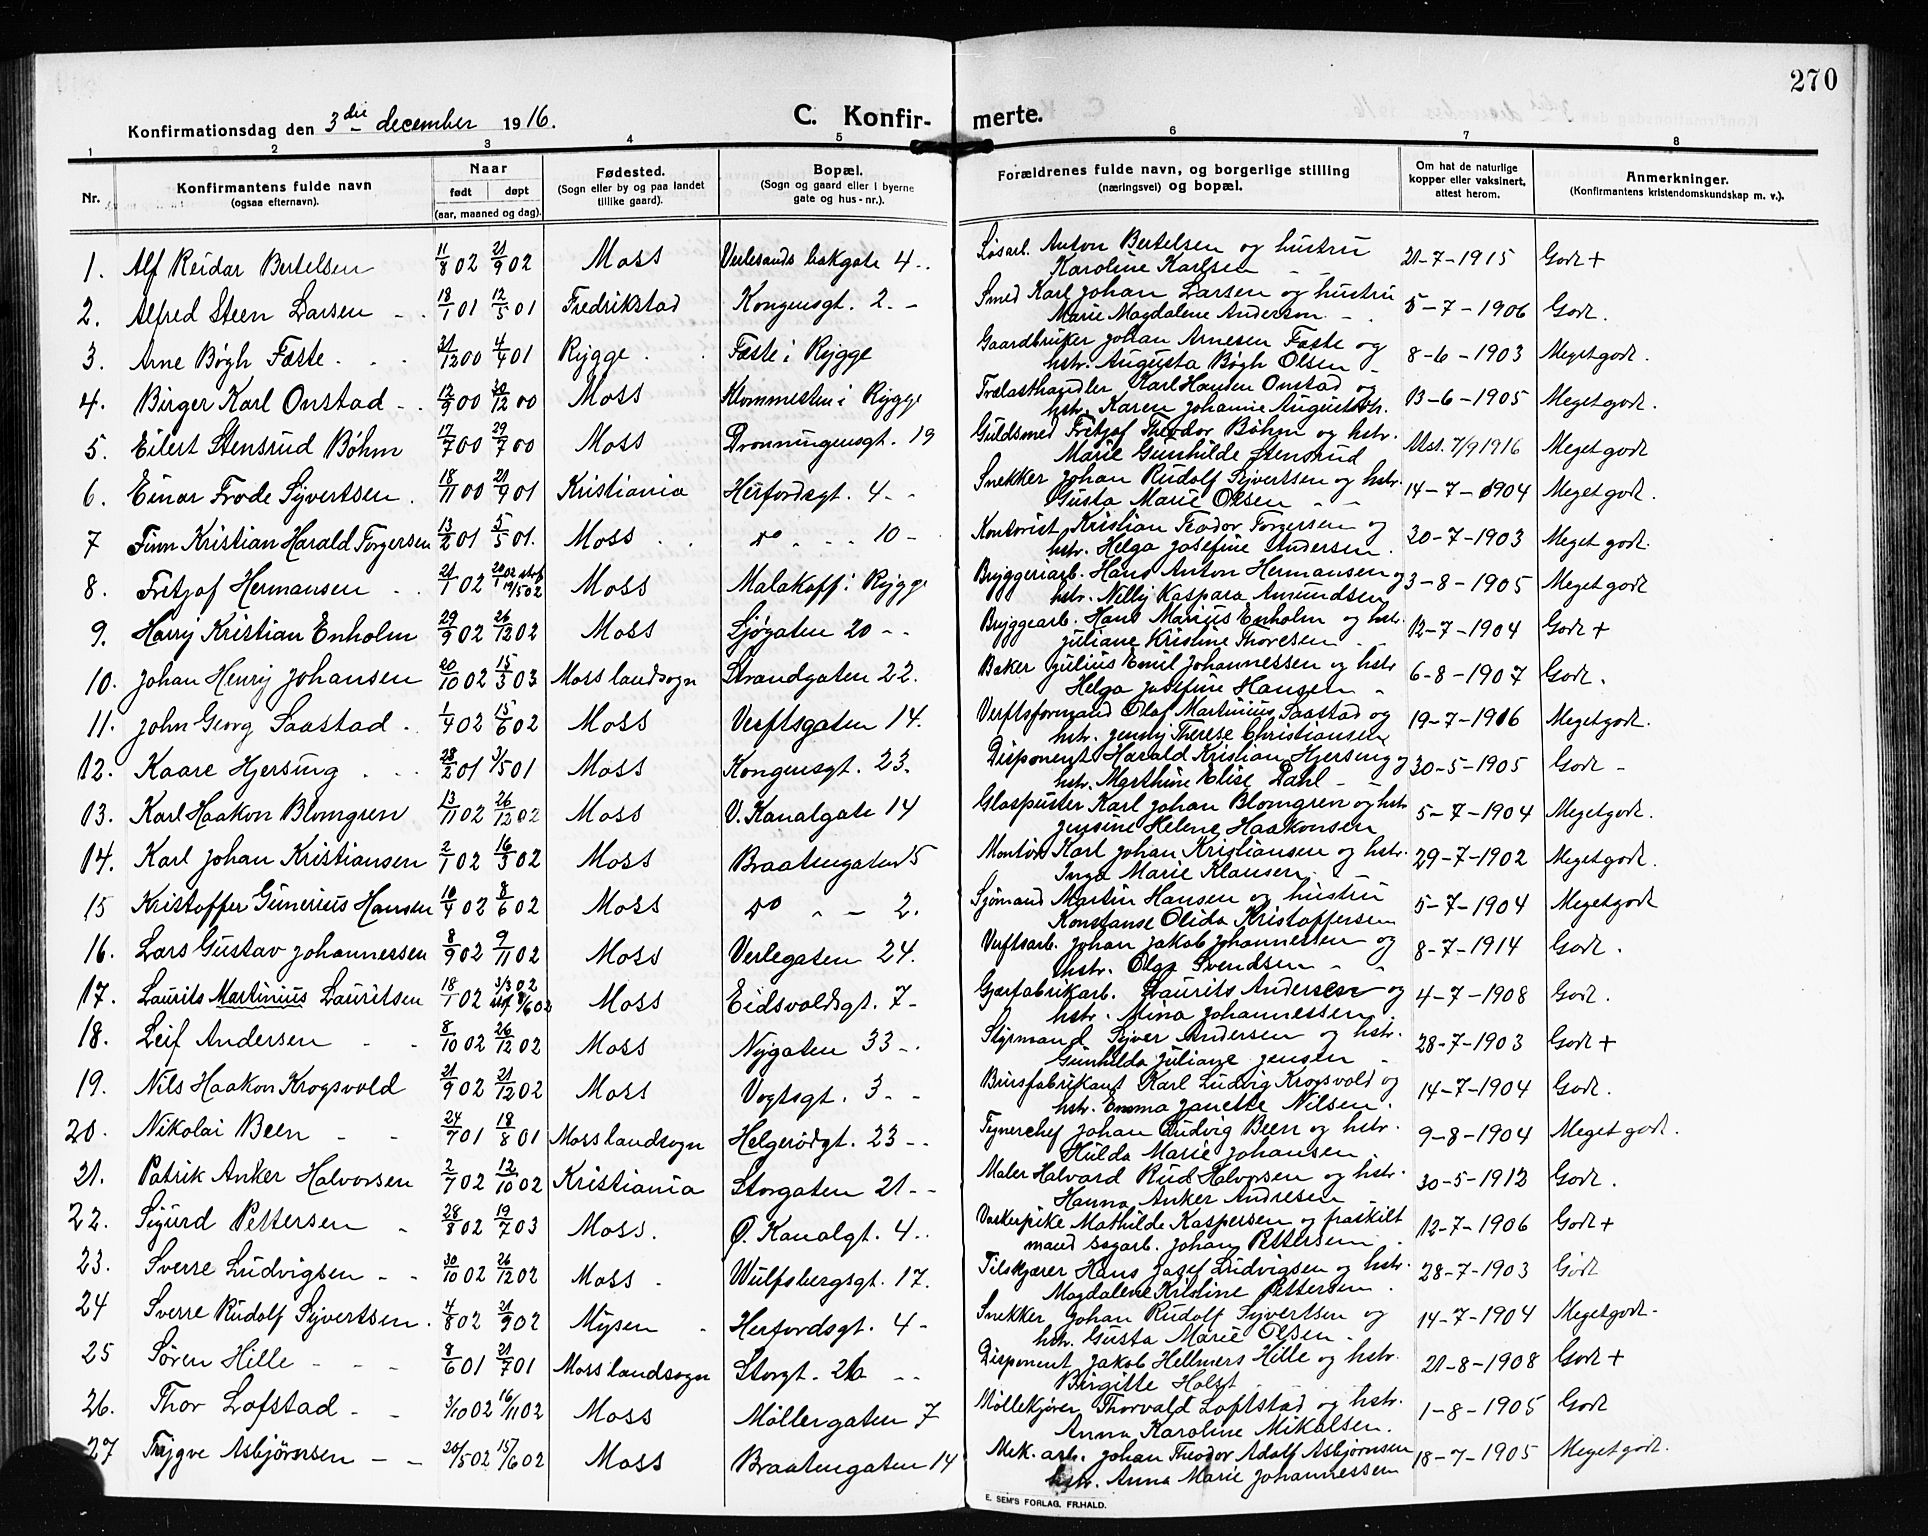 270
Konfirmationsdag den 3die december 1916.
C. Konfir- merte.
1 2 3 4 5 6 7 8
Nr.
Konfirmantens fulde navn
(ogsaa efternavn).
Naar
født døpt
(aar, maaned og dag).
Fødested.
(Sogn eller by og paa landet
tillike gaard).
Bopæl.
(Sogn og gaard eller i byerne
gate og hus-nr.).
Forældrenes fulde navn, og borgerlige stilling
(næringsvei) og bopæl.
Om hat de naturlige
kopper eller vaksinert,
attest herom.
Anmerkninger.
(Konfirmantens kristendomskundskap m. v.).
1. Alf Reidar Bertelsen 11/8 02 21/9 02 Moss Verlesands bakgate 4 Løsarb. Anton Bertelsen og hustru 21-7-1915 Godt +
Karoline Karlsen
2. Alfred Steen Larsen 18/1 01 12/5 01 Fredrikstad Kongensgt. 2. Smed Karl Johan Larsen og hustru 5-7-1906 Godt.
Marie Magdalene Anderson
3. Arne Bøgh Fæste 31/12 00 4/4 01 Rygge Fæste i Rygge Gaardbruker Johan Arnesen Fæste og 8-6-1903 Megetgodt.
hstr. Augusta Bøgh Olsen
4. Birger Karl Onstad 12/9 00 30/12 00 Moss Klommesten i Rygge Trælasthandler Karl Hansen Onstad og 13-6-1905 Megetgodt.
hstr. Karen Johanne
5. Eilert Stensrud Bøhm 17/7 00 29/7 00 Moss Dronningensgt. 19 Guldsmed Fritjof Theodor Bøhm og hstr. Att. 7/9 1916 Megetgodt
Marie Gunhilde Stensrud
6. Einar Frode Syvertsen 18/11 00 21/9 01 Kristiania Herfordsgt. 4 Snekker Johan Rudolf Syvertsen og hstr. 14-7-1904 Megetgodt.
Gusta Marie Olsen
7 Finn Kristian Harald Torgersen 13/2 01 5/5 01. Moss do 10 Kontorist Kristian Teodor Torgersen og 20-7-1903 Meget godt.
hstr. Helga Josefine Andersen.
8. Fritjof Hermansen 21/1 02 Moss Malakoff i Rygge Bryggeriarb. Hans Anton Hermansen og 3-8-1905 Meget godt
hstr. Nelly Kaspara Amundsen
9. Harry Kristian Enholm 29/9 02 26/12 02 Moss Sjøgaten 20 Bryggearb. Hans Marius Enholm og hstr. 12-7-1904 Godt +
Juliane Kristine Thoresen
10. Johan Henry Johansen 20/10 02 15/3 03 Moss landsogn Strandgaten 22. Baker Julius Emil Johannessen og hstr 6-8-1907 Godt.
Helga Josefine Hansen
11. John Georg Saastad 1/4 02 15/6 02 Moss Verftsgaten 14. Verftsformand Olaf Martinius Saastad og 19-7-1916 Megetgodt.
hstr. Jenny Therese Christiansen
12. Kaare Hjersing 28/2 01 3/5 01 Moss Kongensgt. 23. Disponent Harald Kristian Hjersing og 30-5-1905 Godt
hstr. Marthine Elise Dahl
13. Karl Haakon Blomgren 13/11 02 26/12 02 Moss V. Kanalgate 14 Glaspuster Karl Johan Blomgren og hstr 5-7-1904 Megetgodt.
Jensine Helene Haakonsen
14. Karl Johan Kristiansen 2/1 02 16/3 02 Moss Braatengaten 15 Montør Karl Johan Kristiansen og hstr. 29-7-1902 Megetgodt.
Inga Marie Klausen
15 Kristoffer Gunerius Hansen 10/4 02 8/6 02 Moss do 2. Sjømand Martin Hansen og hustru 5-7-1904 Megetgodt
Konstanse Olida Kristoffersen
16. Lars Gustav Johannessen 8/9 02 9/11 02 Moss Verlegaten 24. Verftsarb. Johan Jakob Johannessen og 8-7-1914 Godt.
hstr. Olga Svendsen
17. Laurits Martinius Lauritsen 18/1 02 3/3 02 Moss Eidsvoldsgt. 7 Gjærfabrikarb. Laurits Andersen og 4-7-1908 Godt.
hstr. Mina Johannessen
18. Leif Andersen 8/10 02 26/12 02 Moss Nygaten 33 Styrmand Syver Andersen og hstr. 28-7-1903 Godt +
Gunhilda Juliane Jensen
19. Nils Haakon Krogsvold 21/9 02 21/12 02 Moss Vogtsgt. 3 Bursfabrikant Karl Ludvig Krogsvold og 14-7-1904 Godt.
hstr. Emma Janette Nilsen.
20. Nikolai Been 24/7 01 18/8 01 Moss landsogn Helgerødgt. 23 Johan Ludvig Been og hstr. 9-8-1904 Meget godt.
Hulda Marie Johansen.
21. Patrik Anker Halvorsen 2/7 02 12/10 02 Kristiania Storgaten 21 Maler Halvard Rud Halvorsen og hstr. 30-5-1912 Godt.
Hanna Anker Andresen
22. Sigurd Pettersen 28/8 02 19/7 03 Moss. Ø. Kanalgt. 4 Vaskerpike Mathilde Kaspersen og fraskilt 12-7-1906 Godt +
mand sagarb. Johan Pettersen
23. Sverre Ludvigsen 30/10 02 26/12 02 Moss Wulfsbergsgt. 17. Tilskjærer Hans Josef Ludvigsen og hstr. 28-7-1903 Godt
Magdalene Kristine Pettersen
24 Sverre Rudolf Syvertsen. 4/8 02 21/9 02 Mysen Herfordsgt. 4 Snekker Johan Rudolf Syvertsen og 14-7-1904 Megetgodt
hstr. Gusta Marie Olsen
25 Søren Hille 8/6 01 21/7 01 Moss landsogn Storgt. 26 Disponent Jakob Hellmers Hille og hstr. 21-8-1908 Godt +
Birgitte Holst
26. Thor Lofstad 3/10 02 16/11 02 Moss Møllergaten 7 Møllekjører Thorvald Loftstad og hstr. 1-8-1905 Godt
Anna Karoline Mikalsen.
27 Trygve Asbjørnsen 20/5 02 15/6 02 Moss Braatengaten 14 Mek. arb. Johan Theodor Adolf Asbjørnsen 18-7-1905 Megetgodt.
hstr. Anna Marie Johannessen
E. SEM'S FORLAG, FR.HALD.